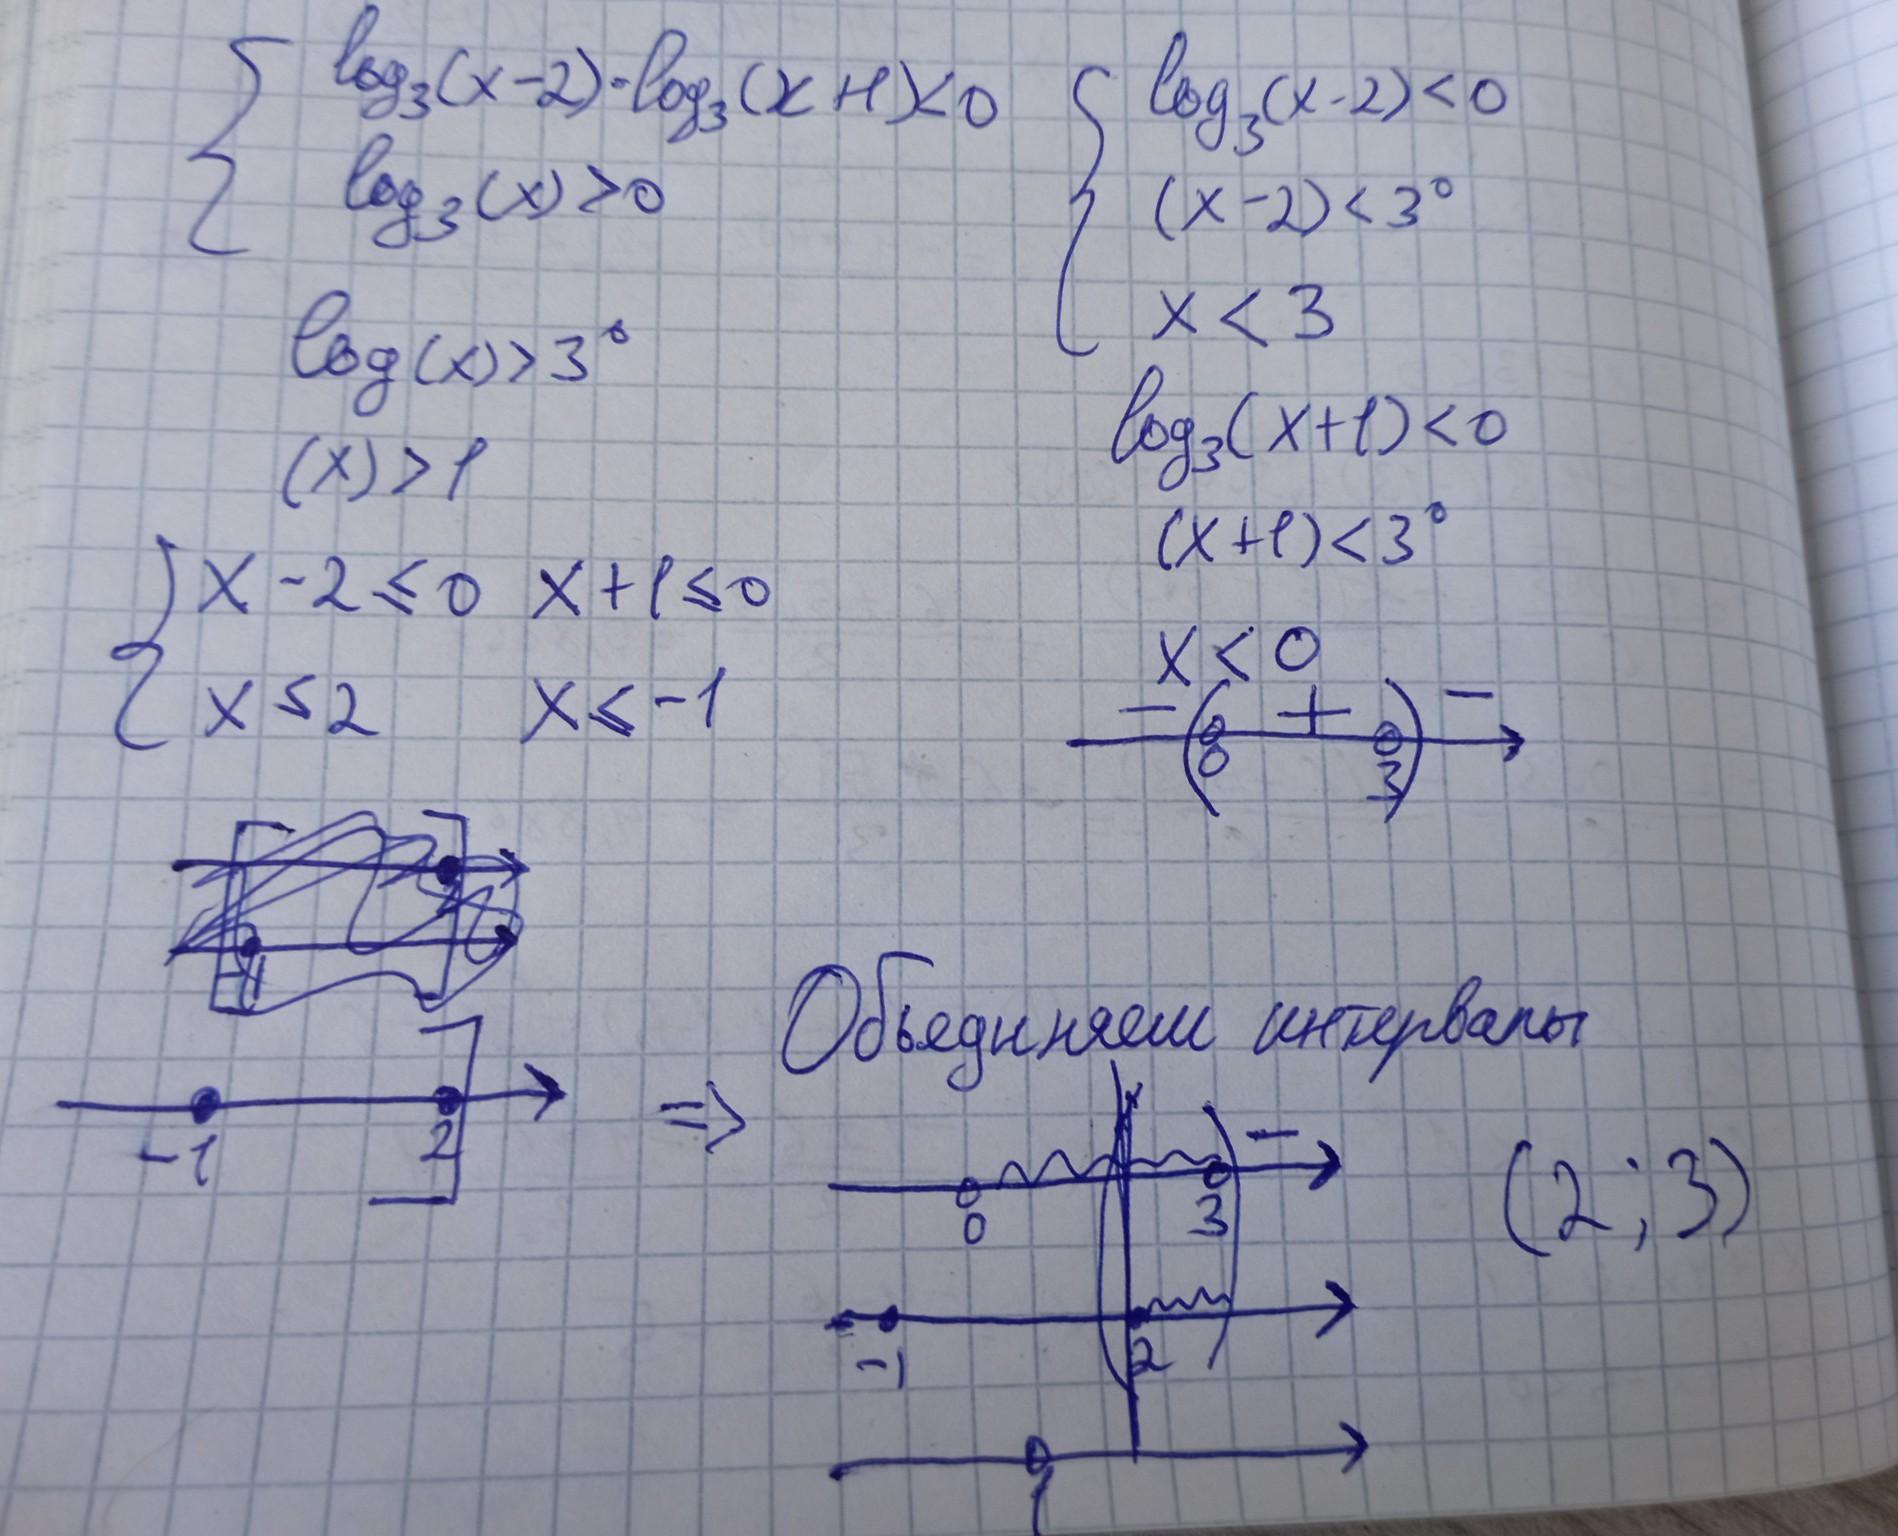 log₃(x-2)·log₃(x+1)<0
log₃(x)>0
log(x)>3⁰
(x)>1
x-2≤0 x+1≤0
x≤2 x≤-1
-1 2
log₃(x-2)<0
(x-2)<3⁰
x<3
log₃(x+1)<0
(x+1)<3⁰
x<0
- + -
0 3
=> Объединяем интервалы
-
0 3
(2;3)
-1 2
1